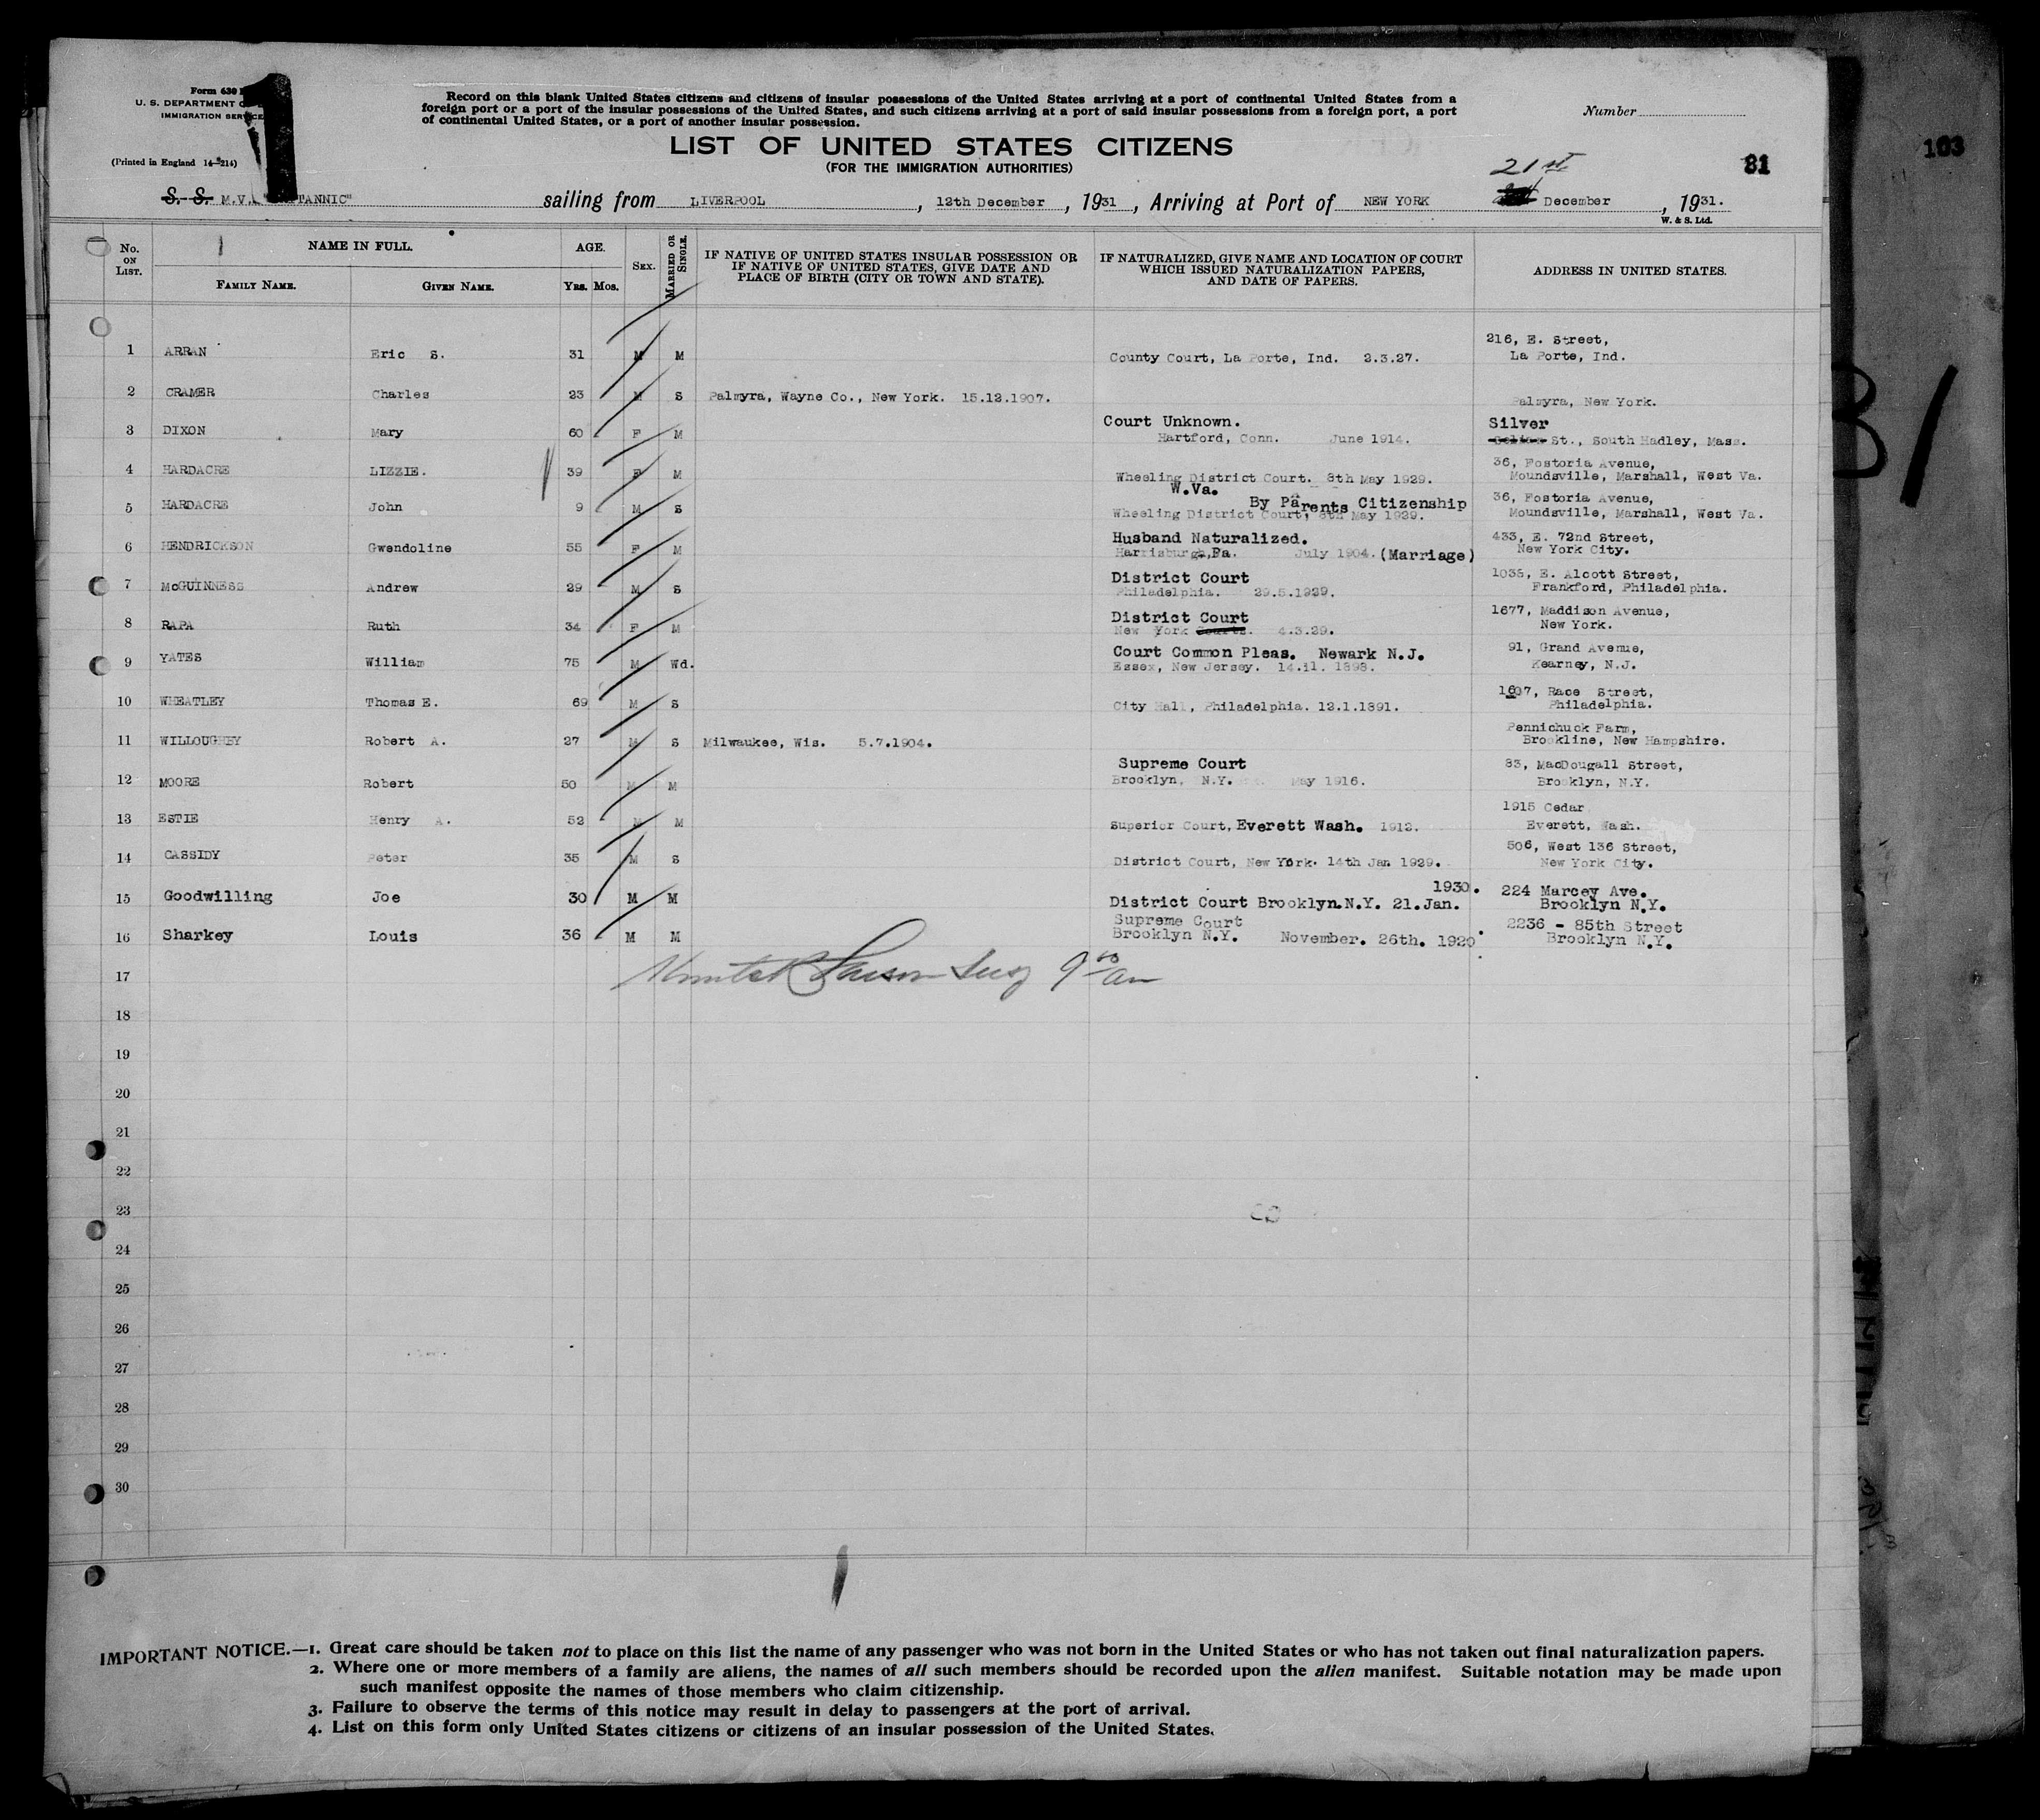 Form 630
U. S. DEPARTMENT
IMMIGRATION SERVICE
(Printed in England 14-8214)
1
Record on this blank United States citizens and citizens of insular possessions of the United States arriving at a port of continental United States from a
foreign port or a port of the insular possessions of the United States, and such citizens arriving at a port of said insular possessions from a foreign port, a port
of continental United States, or a port of another insular possession.
Number
LIST OF UNITED STATES CITIZENS
(FOR THE IMMIGRATION AUTHORITIES)
21st
81
103
S. S. M.V. TANNIC" sailing from LIVERPOOL, 12th December, 1931, Arriving at Port of NEW YORK December, 1931.
W. & S. Ltd.
No. ON LIST. NAME IN FULL. AGE. SEX. MARRIED OR SINGLE. IF NATIVE OF UNITED STATES INSULAR POSSESSION OR IF NATIVE OF UNITED STATES, GIVE DATE AND PLACE OF BIRTH (CITY OR TOWN AND STATE). IF NATURALIZED, GIVE NAME AND LOCATION OF COURT WHICH ISSUED NATURALIZATION PAPERS, AND DATE OF PAPERS. ADDRESS IN UNITED STATES.
FAMILY NAME. GIVEN NAME. YRS. MOS.
1 ARRAN Eric S. 31 M M County Court, La Porte, Ind. 2.3.27. 216, E. Street,
La Porte, Ind.
2 CRAMER Charles 23 M S Palmyra, Wayne Co., New York. 15.12.1907. Palmyra, New York.
3 DIXON Mary 60 F M Court Unknown. Silver
Hartford, Conn. June 1914. St., South Hadley, Mass.
4 HARDACRE LIZZIE. 39 F M Wheeling District Court. 8th May 1929. 36, Fostoria Avenue,
W.Va. Moundsville, Marshall, West Va.
5 HARDACRE John 9 M S By Parents Citizenship 36, Fostoria Avenue,
Wheeling District Court, 8th May 1929. Moundsville, Marshall, West Va.
6 HENDRICKSON Gwendoline 55 F M Husband Naturalized. 433, E. 72nd Street,
Harrisburgh,Pa. July 1904. (Marriage) New York City.
7 McGUINNESS Andrew 29 M S District Court 1036, E. Alcott Street,
Philadelphia. 29.5.1929. Frankford, Philadelphia.
8 RAPA Ruth 34 F M District Court 1677, Maddison Avenue,
New York Courts. 4.3.29. New York.
9 YATES William 75 M Wd. Court Common Pleas. Newark N.J. 91, Grand Avenue,
Essex, New Jersey. 14.11. 1898. Kearney, N.J.
10 WHEATLEY Thomas E. 69 M S City Hall, Philadelphia. 12.1.1891. 1607, Race Street,
Philadelphia.
11 WILLOUGHBY Robert A. 27 M S Milwaukee, Wis. 5.7.1904. Pennichuck Farm,
Brookline, New Hampshire.
12 MOORE Robert 50 M M Supreme Court 83, MacDougall Street,
Brooklyn, N.Y. May 1916. Brooklyn, N.Y.
13 ESTIE Henry A. 52 M M Superior Court, Everett Wash. 1912. 1915 Cedar
Everett, Wash.
14 CASSIDY Peter 35 M S District Court, New York. 14th Jan 1929. 506, West 136 Street,
New York City.
15 Goodwilling Joe 30 M M 1930. 224 Marcey Ave.
District Court Brooklyn.N.Y. 21.Jan. Brooklyn N.Y.
16 Sharkey Louis 36 M M Supreme Court 2236 - 85th Street
Brooklyn N.Y. November. 26th. 1920 Brooklyn N.Y.
17
18
19
20
21
22
23
24
25
26
27
28
29
30
IMPORTANT NOTICE.—1. Great care should be taken not to place on this list the name of any passenger who was not born in the United States or who has not taken out final naturalization papers.
2. Where one or more members of a family are aliens, the names of all such members should be recorded upon the alien manifest. Suitable notation may be made upon
such manifest opposite the names of those members who claim citizenship.
3. Failure to observe the terms of this notice may result in delay to passengers at the port of arrival.
4. List on this form only United States citizens or citizens of an insular possession of the United States.